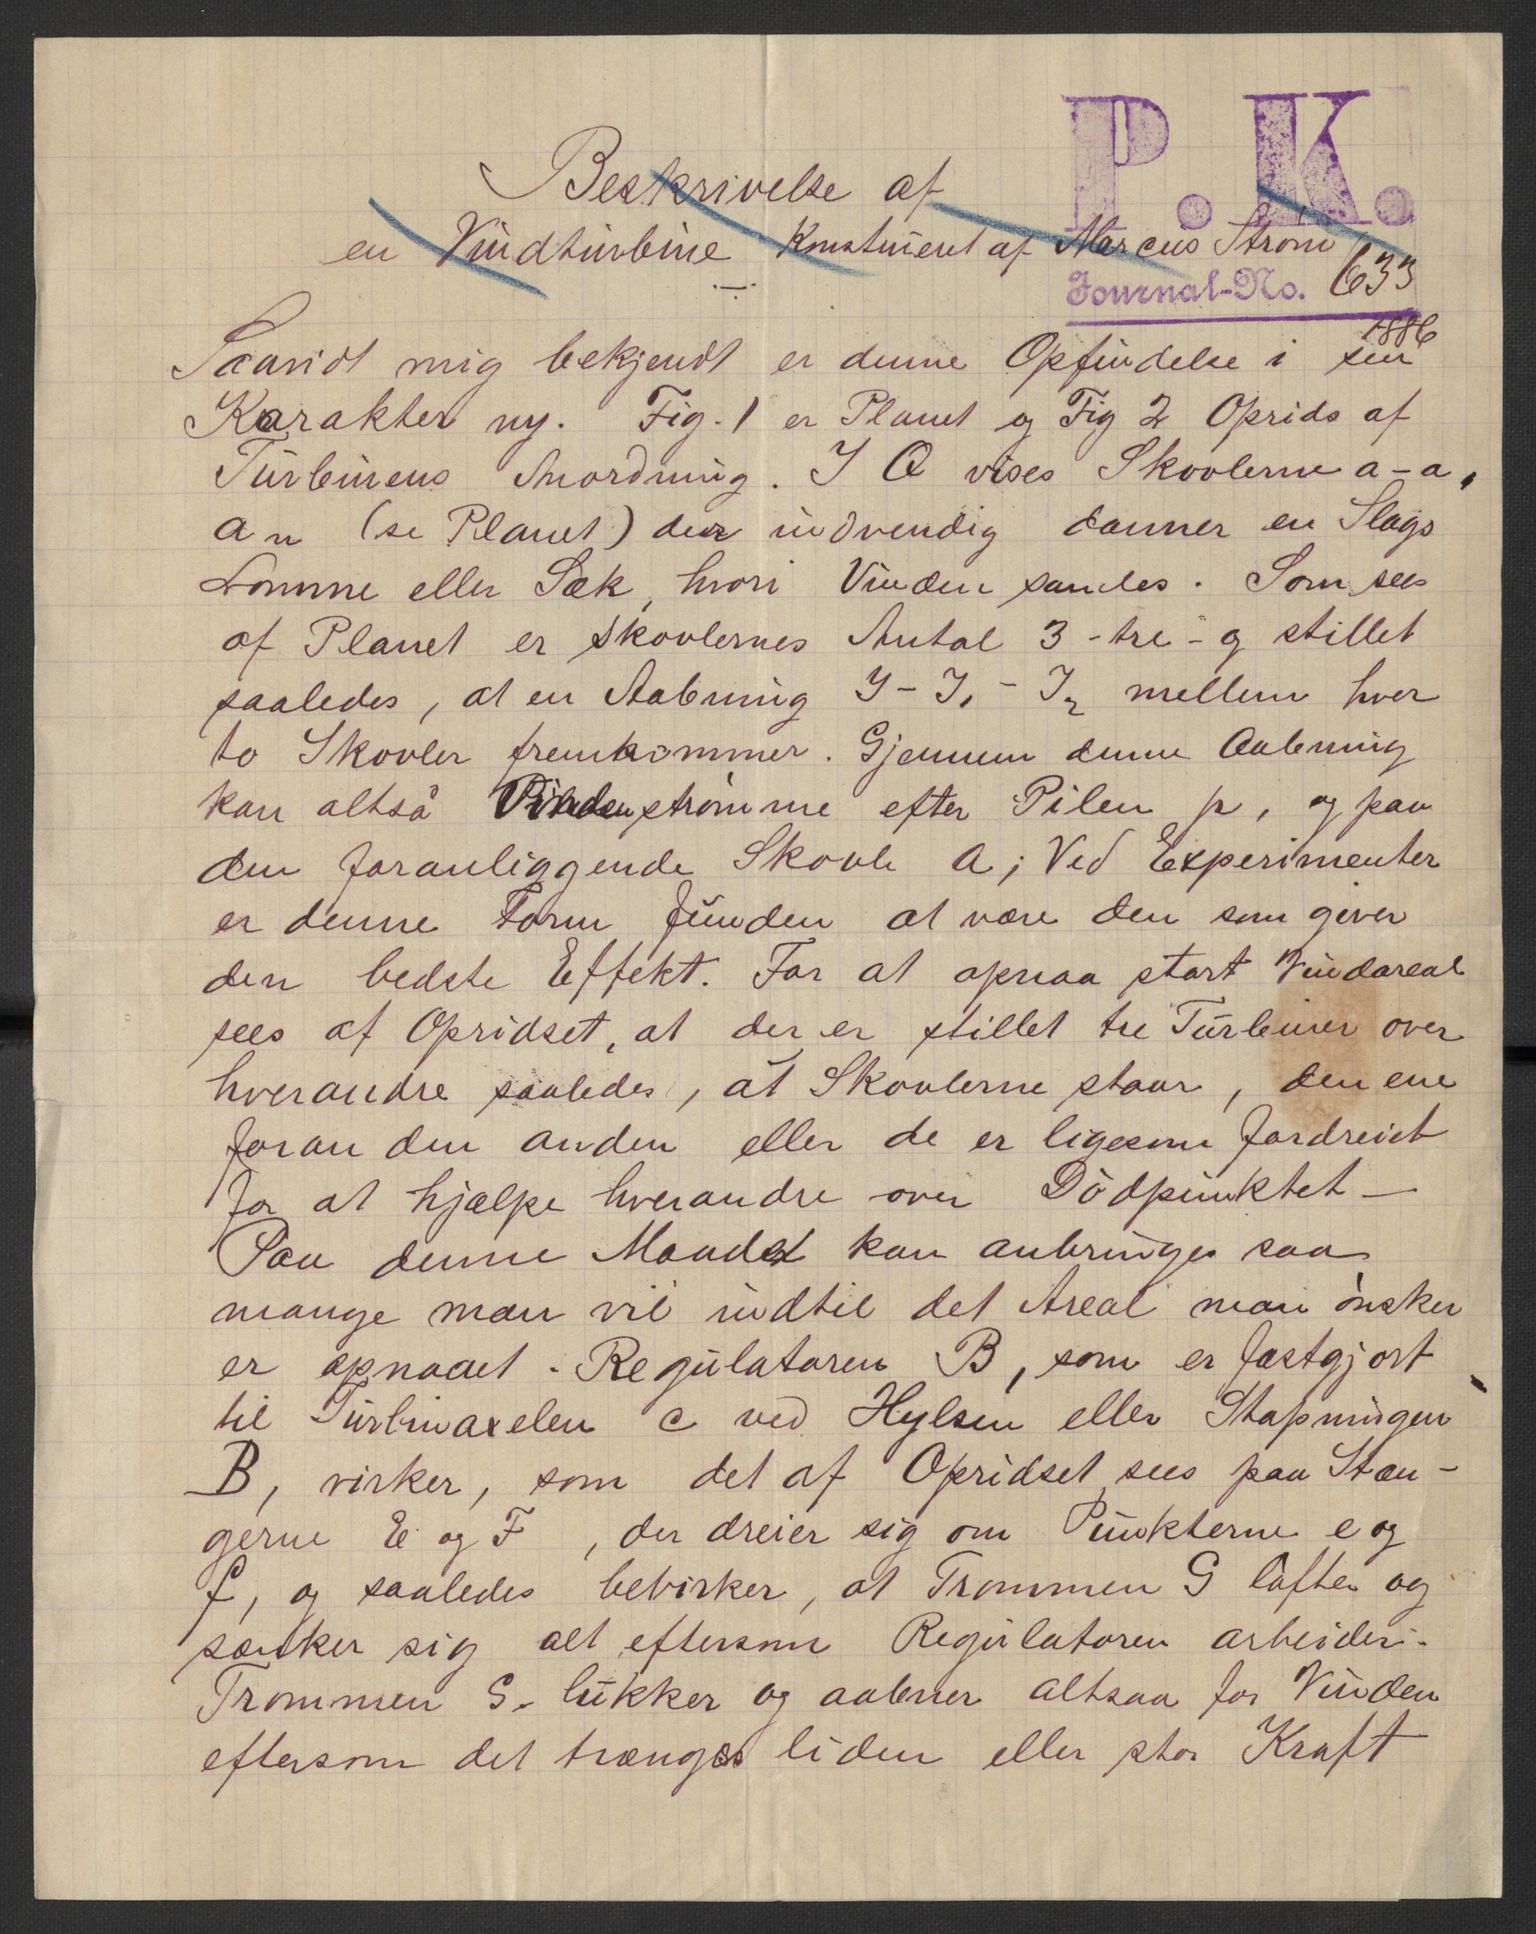 P. K.
Beskrivelse af
en Vindturbine Konstrueret af Marcus Strøm
Journal-No. 633
1886
Saavidt mig bekjendt er denne Opfindelse i sin
Karakter ny. Fig. 1 er Planet og Fig 2 Oprids af
Turbinens Anordning. I Q vises Skovlerne a-a,
a₂ (se Planet) der indvendig danner en Slags
Lomme eller Sæk, hvori Vinden samles. Som sees
af Planet er Skovlernes Antal 3 - tre - og stillet
saaledes, at en Aabning I - I₁ - I₂ mellem hver
to Skovler fremkommer. Gjennem denne Aabning
kan altså Vinden strømme efter Pilen p, og paa
den foranliggende Skovle a; Ved Experimenter
er denne Form funden at være den som giver
den bedste Effekt. For at opnaa stort Vindareal
sees af Opridset, at der er stillet tre Turbiner over
hverandre saaledes, at Skovlerne staar, den ene
foran den anden eller de er ligesom fordreiet
for at hjælpe hverandre over Dödpunktet —
Paa denne Maade kan anbringes saa
mange man vil indtil det Areal man ønsker
er opnaaet. Regulatoren B, som er fastgjort
til Turbinaxelen c ved Hylsen eller Støpningen
B, virker, som det af Opridset sees paa Stæn-
gerne E og F, der dreier sig om Punkterne e og
f, og saaledes bevirker, at Trommen G løfter og
sænker sig alt eftersom Regulatoren arbeider.
Trommen G. lukker og aabner altsaa for Vinden
eftersom det trænges liden eller stor Kraft